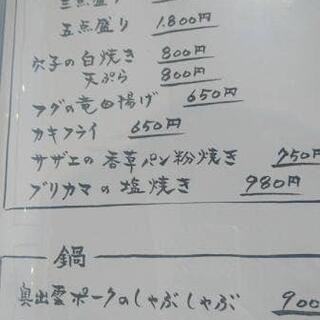 三点盛り
五点盛り 1.800円
穴子の白焼き 800円
天ぷら 800円
フグの竜田揚げ 650円
カキフライ 650円
サザエの香草パン粉焼き 750円
ブリカマの塩焼き 980円
鍋
奥出雲ポークのしゃぶしゃぶ 900